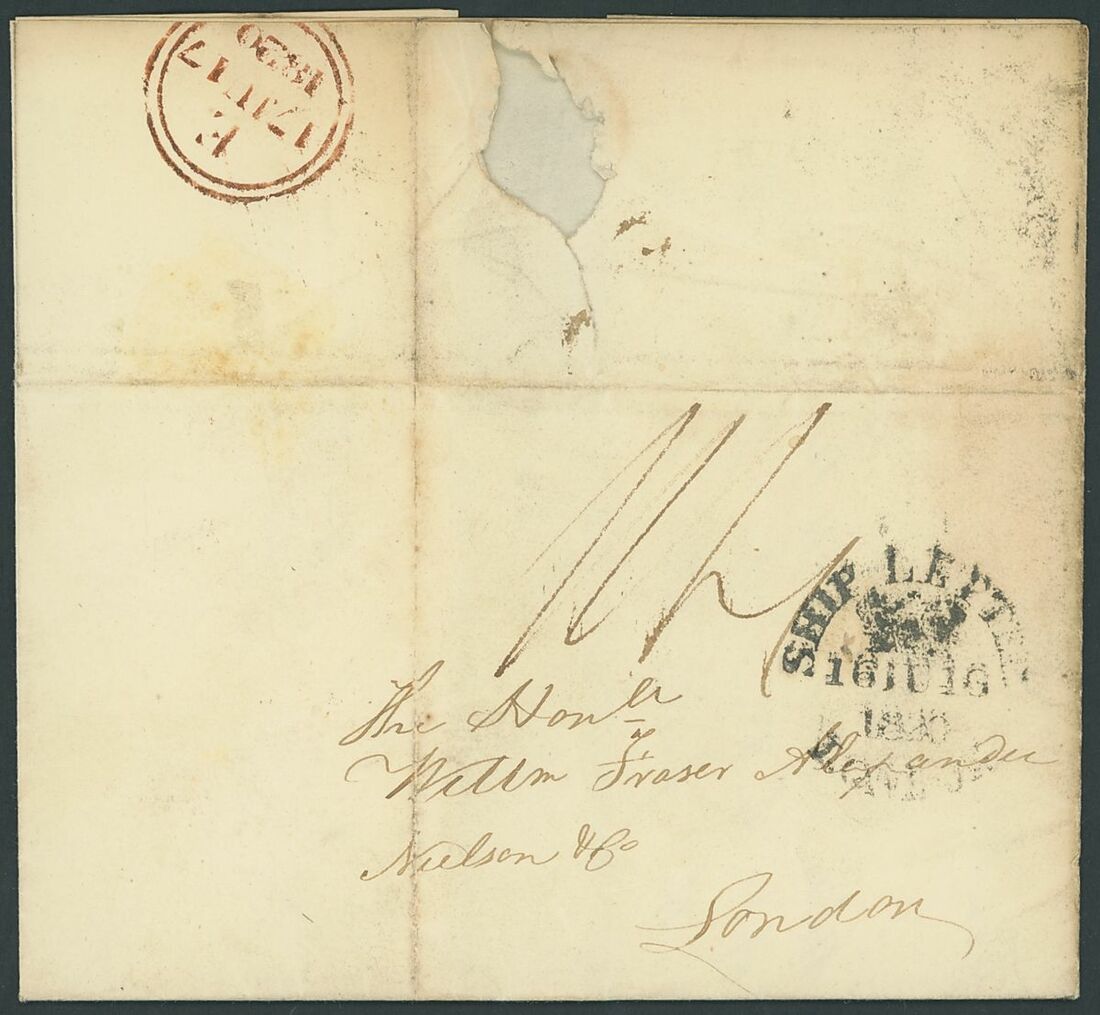 E
17 JU 17
1820
SHIP LETTER
16 JU 16
The Honble
Willm Fraser Alexander
Neilson & Co
London